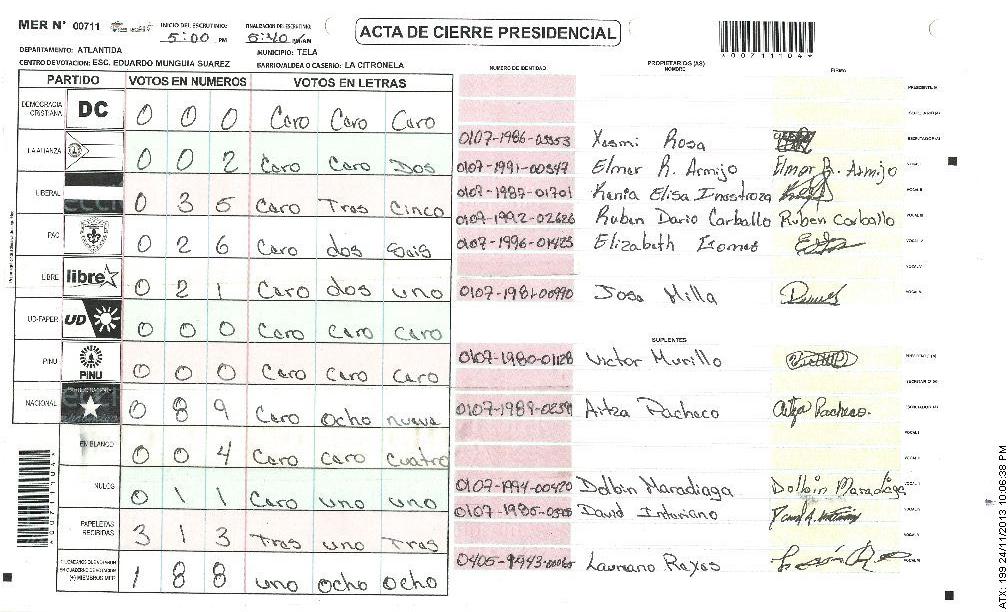 MER N° 00711
INICIO DEL ESCRUTINIO: 5:00 PM
FINALIZACION DEL ESCRUTINIO: 5:40 PM/AM
ACTA DE CIERRE PRESIDENCIAL
*00711104*
DEPARTAMENTO: ATLANTIDA
MUNICIPIO: TELA
CENTRO DE VOTACION: ESC. EDUARDO MUNGUIA SUAREZ
BARRIO/ALDEA O CASERIO: LA CITRONELA
PARTIDO VOTOS EN NUMEROS VOTOS EN LETRAS
NUMERO DE IDENTIDAD
PROPIETARIOS (AS)
NOMBRE
FIRMA
DEMOCRACIA CRISTIANA DC 0 0 0 Cero Cero Cero
LA ALIANZA 0 0 2 Cero Cero Dos
LIBERAL 0 3 5 Cero Tres Cinco
PAC 0 2 6 Cero dos seis
LIBRE libre 0 2 1 Cero dos uno
UD-FAPER UD 0 0 0 Cero Cero Cero
PINU PINU 0 0 0 Cero Cero Cero
NACIONAL 0 8 9 Cero ocho nueve
EN BLANCO 0 0 4 Cero cero cuatro
NULOS 0 1 1 Cero uno uno
PAPELETAS RECIBIDAS 3 1 3 Tres uno Tres
1 8 8 uno ocho ocho
Yesmi Rosa
0107-1991-00347 Elmer R. Armijo Elmer R. Armijo
0107-1987-01701 Kenia Elisa Inestroza
0107-1992-02626 Ruben Dario Carballo Rúben Carballo
0107-1996-01425 Elizabeth
0107-1981-00990 Jose Milla
SUPLENTES
0107-1980-01128 Victor Murillo
Aitza Pacheco Aitza Pacheco.
0107-1994-00420 Dolbin Maradiaga Dolbin Maradiaga
David Interiano
Laureano Reyes
*00711104*
ATX: 199 24/11/2013 10:06:38 PM